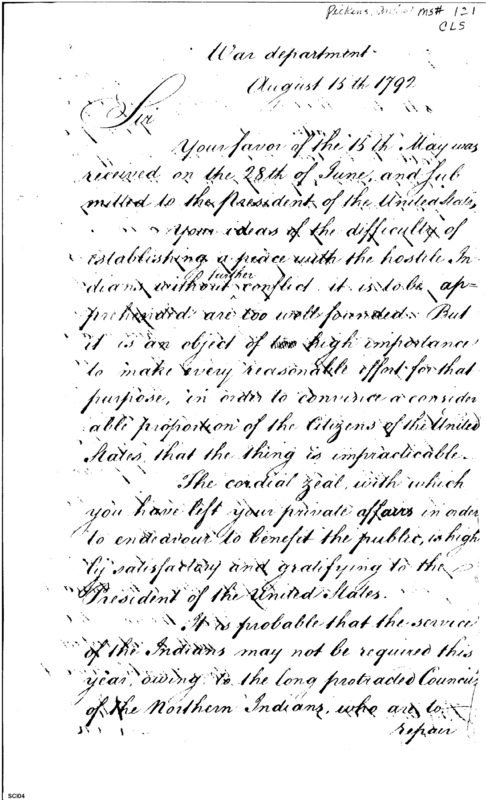 Pickens, ms# 121
CLS
War department
August 15th 1792
Sir
Your favor of the 15th May was
received on the 28th of June, and sub
mitted to the President of the United States,
Your ideas of the difficulty of
establishing a peace with the hostile In
dians without further conflict it is to be ap=
prehended are too well founded. But
it is an object of too high importance
to make every reasonable effort for that
purpose, in order to convince a consider
able proportion of the Citizens of the United
States, that the thing is impracticable.
The cordial zeal, with which
you have left your private affairs in order
to endeavour to benefit the public, is high
ly satisfactory and gratifying to the
President of the United States.
It is probable that the service
of the Indians may not be required this
year, owing to the long protracted Councils
of the Northern Indians, who are to
repair
SCI04